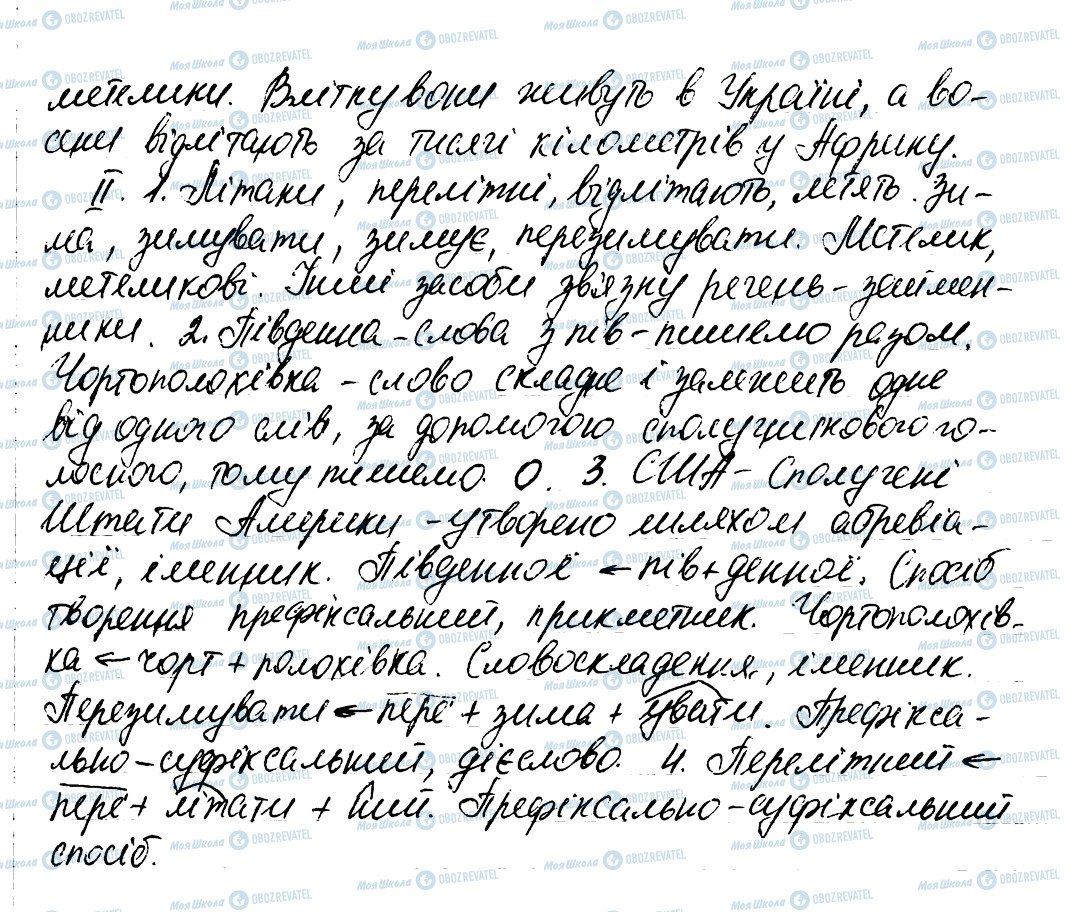 метелики. Влітку вони живуть в Україні, а во-
сени відлітають за тисячі кілометрів у Африку.
II. 1. Літаки, перелітні, відлітають, летять. Зи-
ма, зимувати, зимує, перезимувати. Метелик,
метеликові. Інші засоби зв'язку речень - займен-
ники. 2. Південна - слова з пів - пишемо разом.
Чортополохівка - слово складне і залежить одне
від одного слів, за допомогою сполучникового го-
лосного, тому пишемо О. 3. США - Сполучені
Штати Америки - утворено шляхом абревіа-
ції, іменник. Південної ← пів + денної. Спосіб
творення префіксальний, прикметник. Чортополохів-
ка ← чорт + полохівка. Словоскладення, іменник.
Перезимувати ← пере + зима + увати. Префікса-
льно-суфіксальний, дієслово. 4. Перелітний ←
пере + літати + ний. Префіксально-суфіксальний
спосіб.